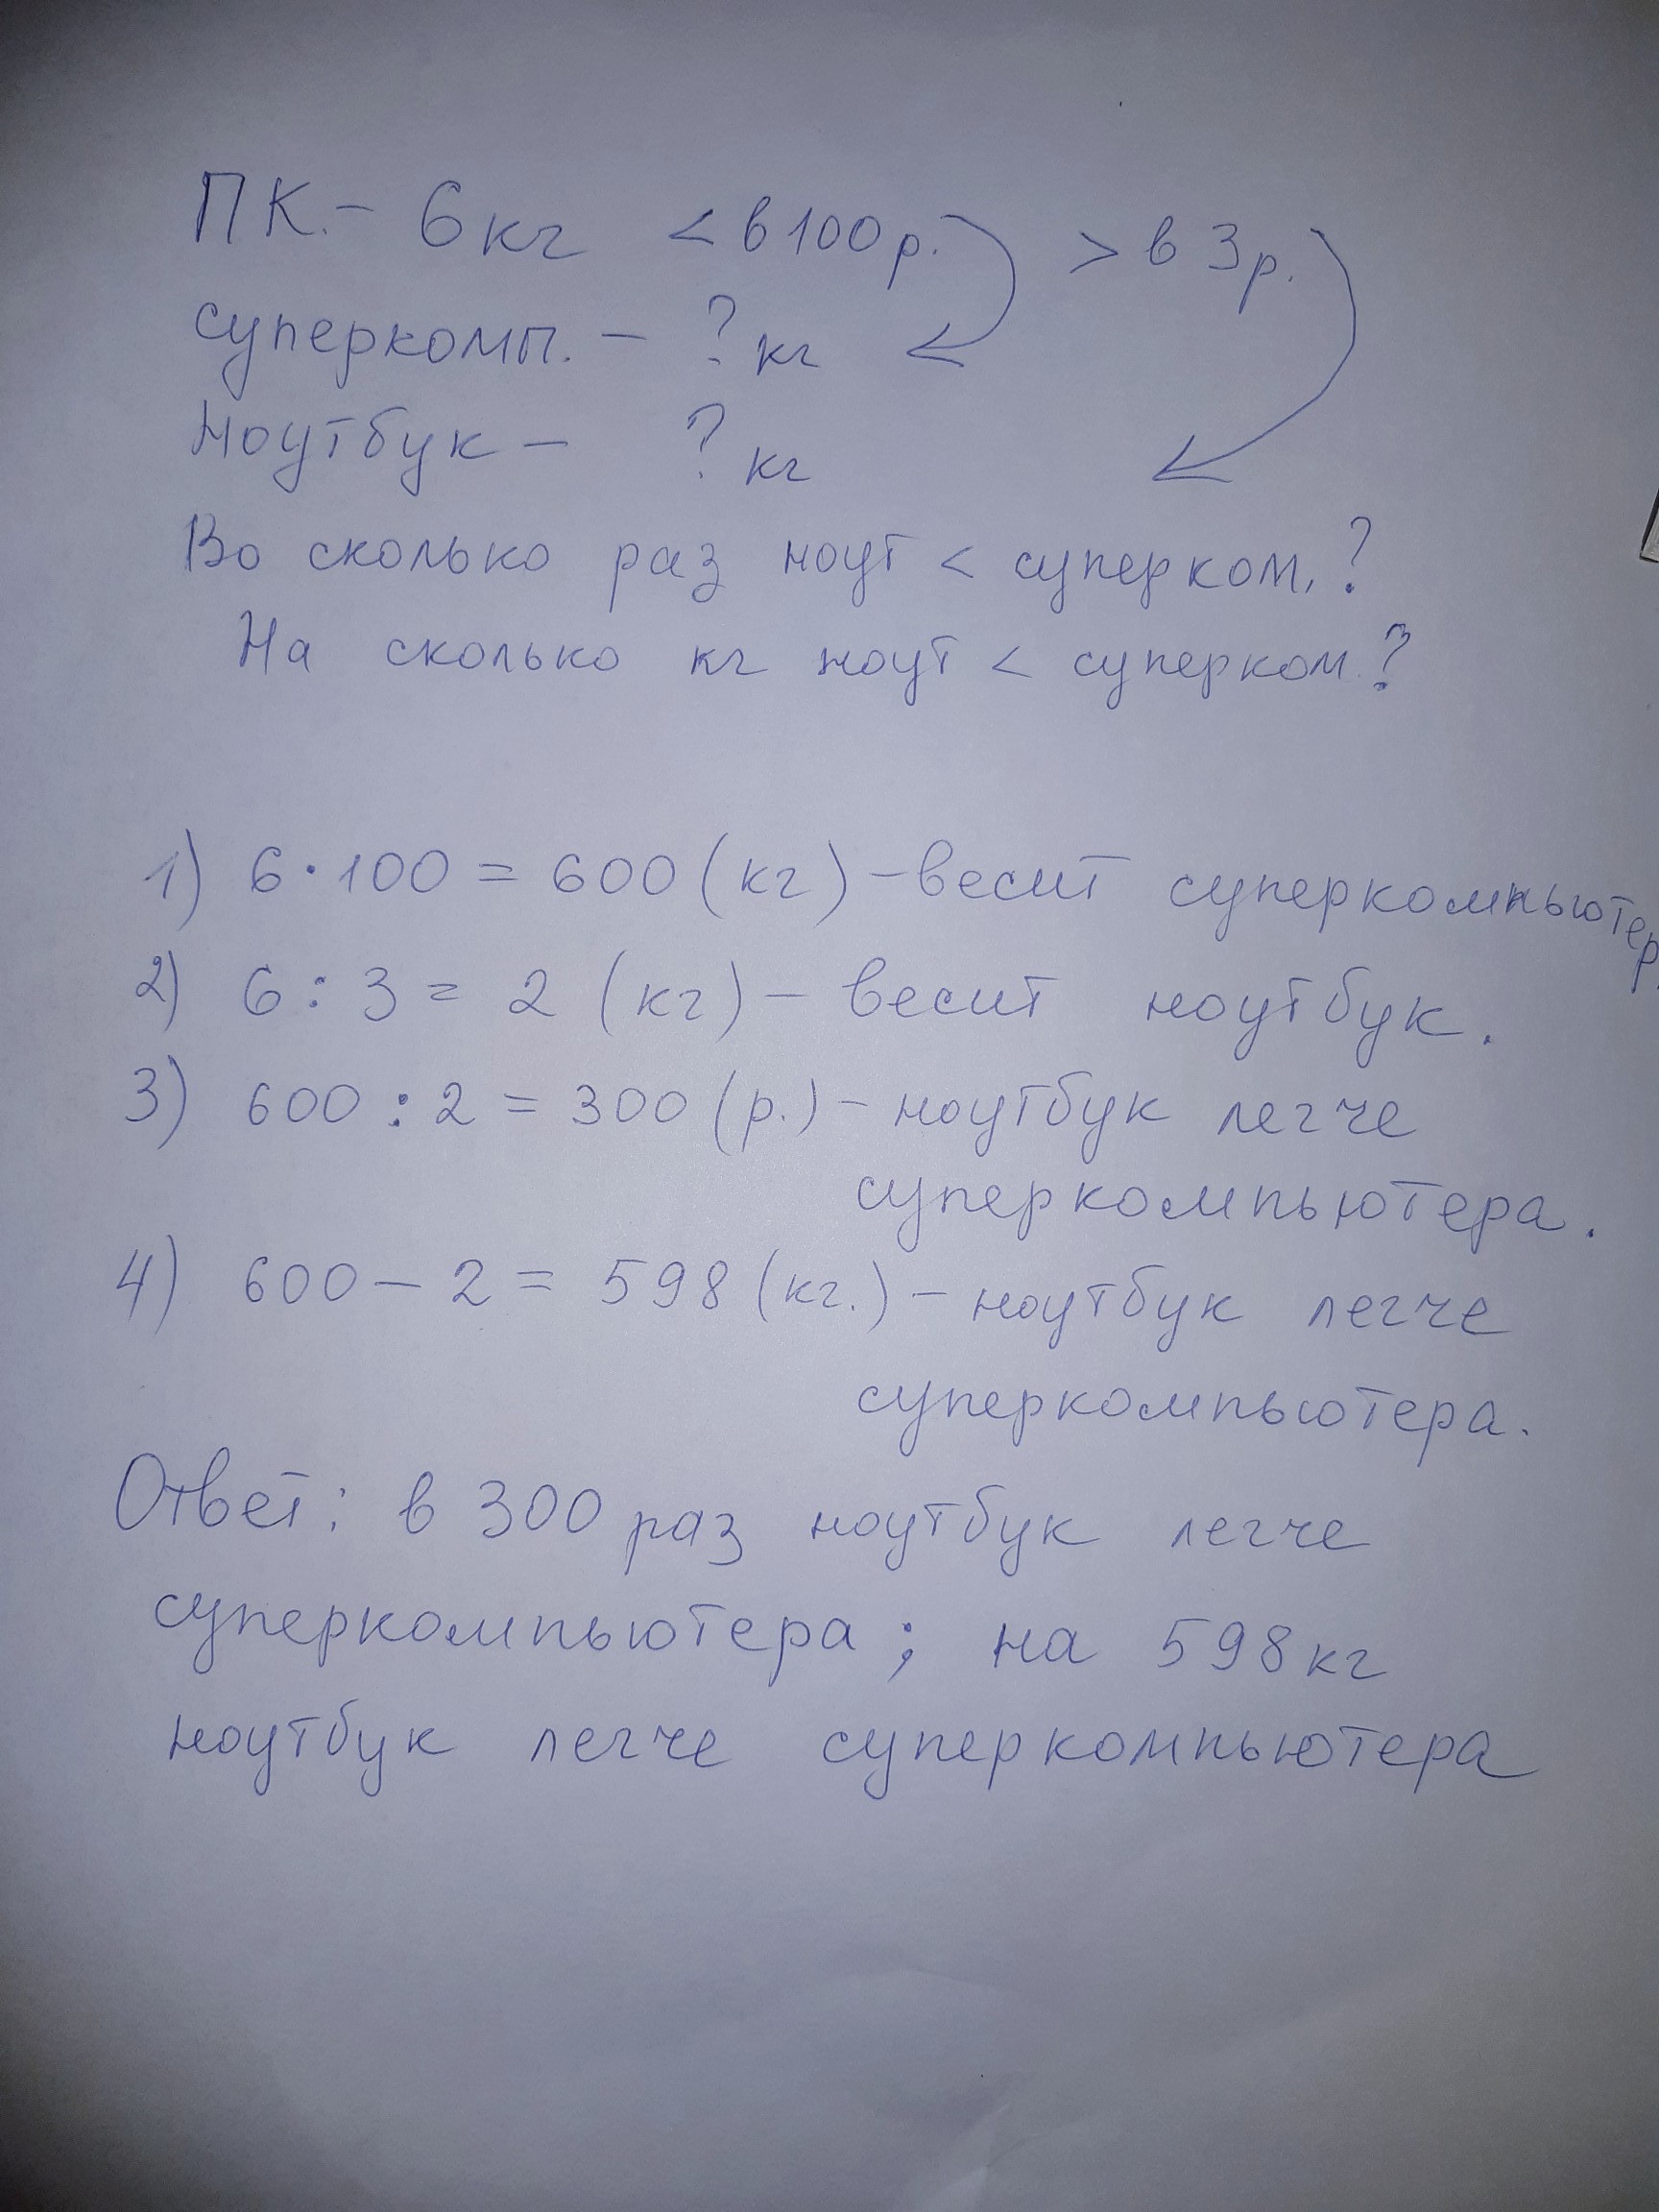 ПК. - 6 кг < в 100 р. > в 3 р.
суперкомп. - ? кг
Ноутбук - ? кг
Во сколько раз ноут < суперком.?
На сколько кг ноут < суперком.?
1) 6 · 100 = 600 (кг) - весит суперкомпьютер.
2) 6 : 3 = 2 (кг) - весит ноутбук.
3) 600 : 2 = 300 (р.) - ноутбук легче
суперкомпьютера.
4) 600 - 2 = 598 (кг.) - ноутбук легче
суперкомпьютера.
Ответ: в 300 раз ноутбук легче
суперкомпьютера; на 598 кг
ноутбук легче суперкомпьютера